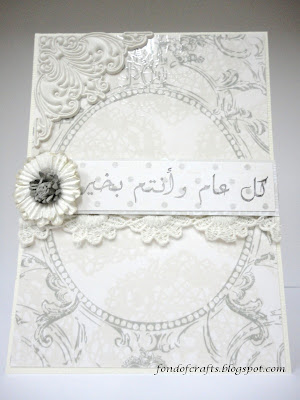 كل عام وأنتم بخير
fondofcrafts.blogspot.com